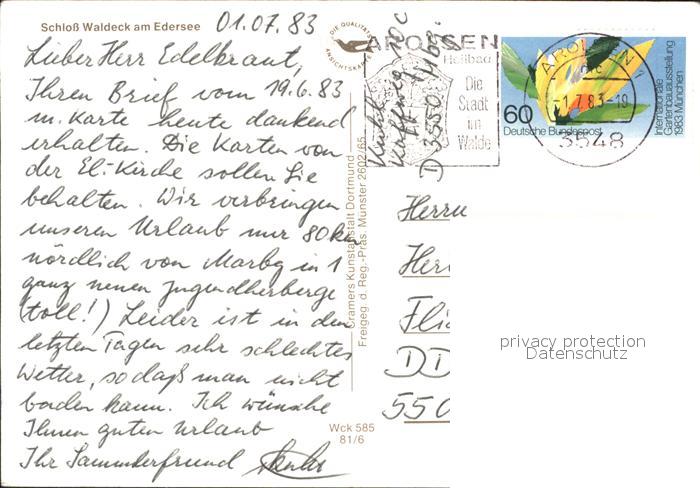 Schloß Waldeck am Edersee
01.07.83
Lieber Herr Edelkraut,
Ihren Brief vom 19.6.83
m. Karte heute dankend
erhalten. Die Karten von
der El.-Kirche sollen Sie
behalten. Wir verbringen
unseren Urlaub nur 80 km
nördlich von Marbg in 1
ganz neuen Jugendherberge
(toll!) Leider ist in den
letzten Tagen sehr schlechtes
Wetter, sodaß man nicht
baden kann. Ich wünsche
Ihnen guten Urlaub
Ihr Sammlerfreund
DIE QUALITÄTS
ANSICHTSKARTE
Cramers Kunstanstalt Dortmund
Freigeg. d. Reg.-Präs. Münster 2602/65
Wck 585
81/6
10c
D 3550
AROLSEN
Heilbad
Die
Stadt
im
Walde
AROLSEN 1
-1.7.83-19
3548
60
Deutsche Bundespost
Internationale
Gartenbauausstellung
1983 München
Herrn
Her
Fli
DD
550
privacy protection
Datenschutz